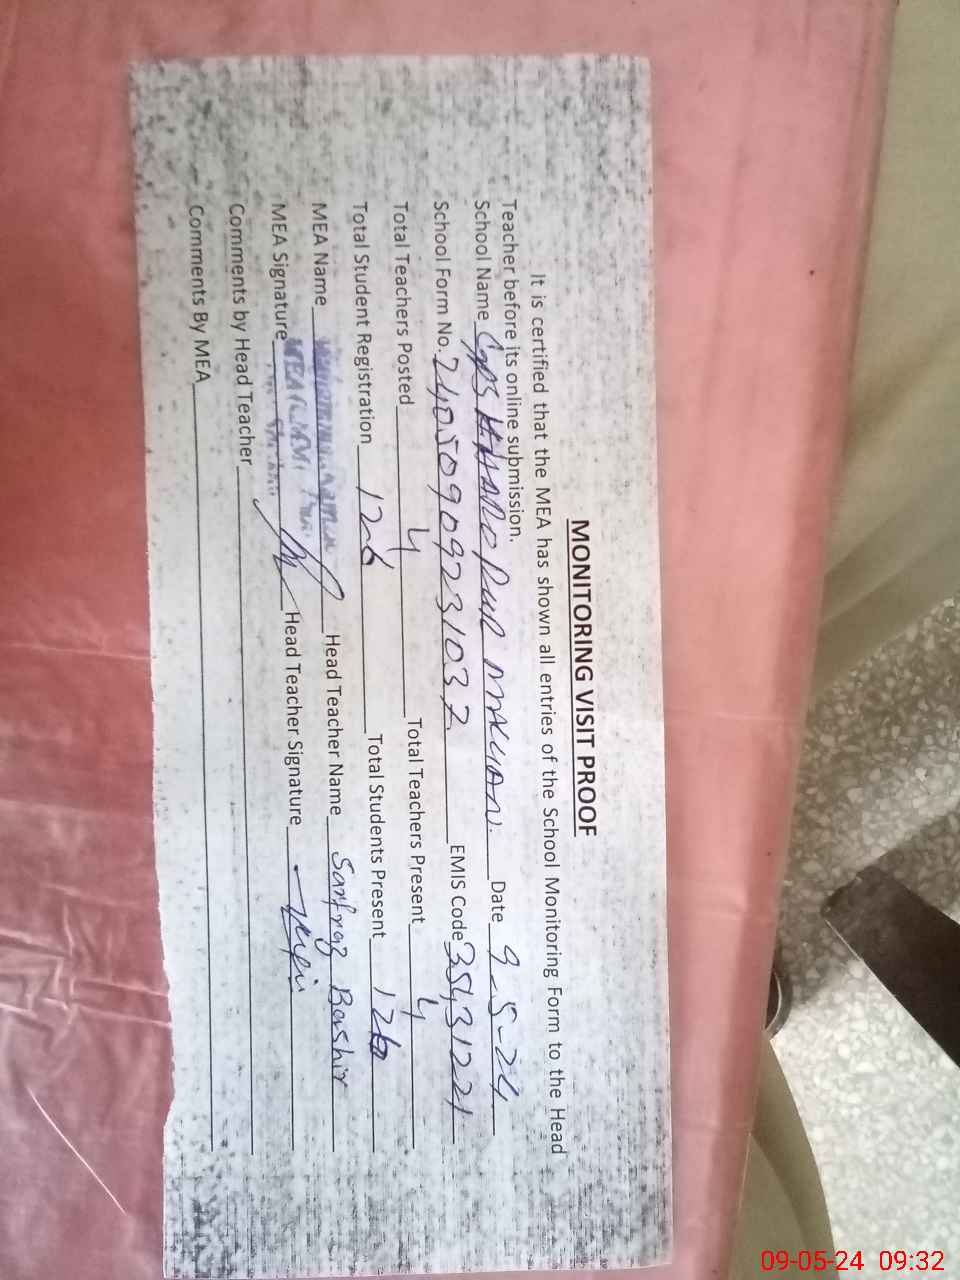 MONITORING VISIT PROOF
It is certified that the MEA has shown all entries of the School Monitoring Form to the Head
Teacher before its online submission.
School Name GPS PUR Date 9-5-24
School Form No. 24050909231037 EMIS Code 35431221
Total Teachers Posted 4 Total Teachers Present 4
Total Student Registration 126 Total Students Present 126
MEA Name Head Teacher Name Sarfraz Bashir
MEA Signature Head Teacher Signature
Comments by Head Teacher
Comments By MEA
09-05-24 09:32